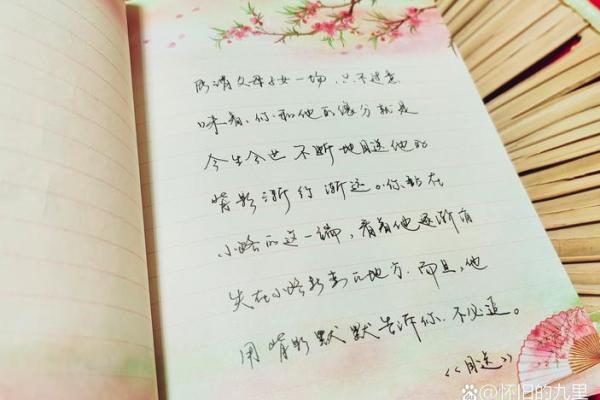 所谓父母子女一场,只不过意
味着,你和他的缘分就是
今生今世不断地目送他的
背影渐行渐远。你站在
小路的这一端,看着他逐渐消
失在小路转弯的地方,而且,他
用背影默默告诉你,不必追。
《目送》
@怀旧的九里